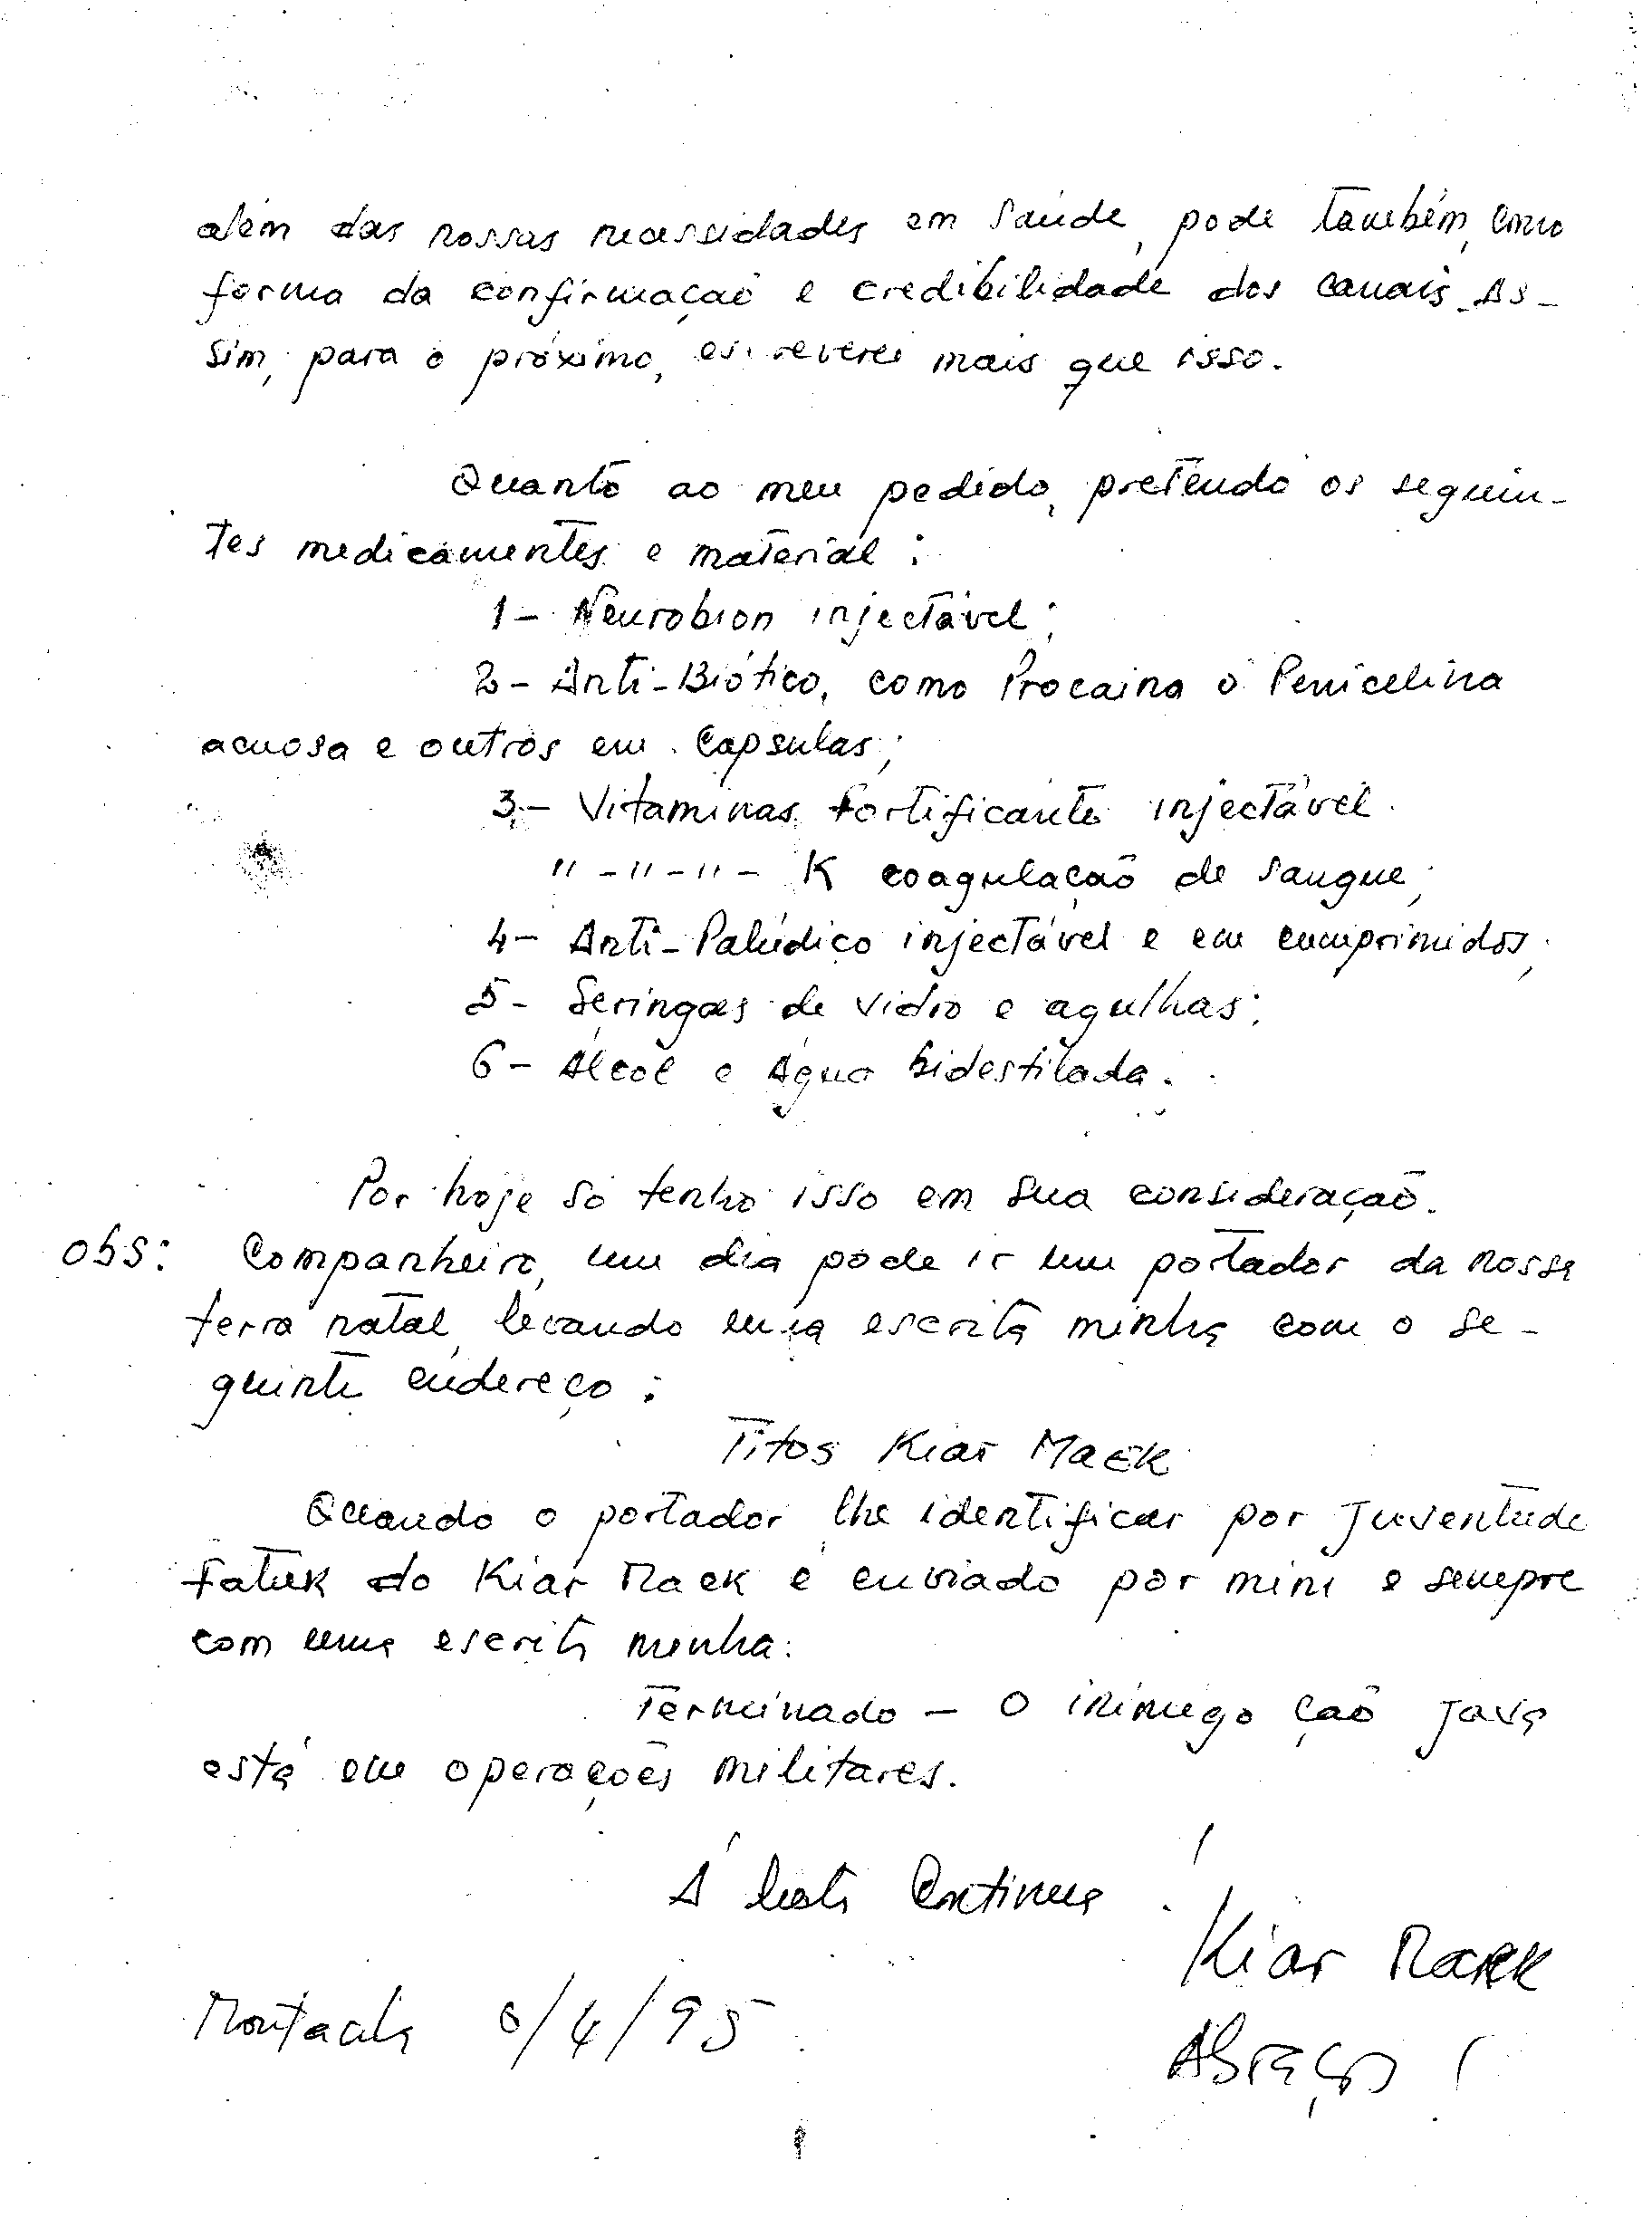 além das nossas necessidades em saúde, pode também, como
forma da confirmação e credibilidade dos canais. As-
sim, para o próximo, escreverei mais que isso.
Quanto ao meu pedido, pretendo os seguin-
tes medicamentos e material:
1- Neurobion injectável;
2- Anti-Biótico, como Procaina o Penicelina
acuosa e outros em capsulas;
3- Vitaminas fortificante injectável.
"-"-"- K coagulação de sangue;
4- Anti-Palúdico injectável e em cumprimidos;
5- Seringas de vidro e agulhas;
6- Álcol e Água bidestilada.
Por hoje só tenho isso em sua consideração.
Obs: Companheiro, um dia pode ir um portador da nossa
terra natal, levando uma escrita minha com o se-
guinte endereço:
Titos Kiar Maek
Quando o portador, lhe identificar por Juventude
Fatuk do Kiar Maek é enviado por mim e sempre
com uma escrita minha.
Terminado - O inimigo ção java
está em operações militares.
A luta Continua!
Kiar Maek
6/4/95
Abraços!